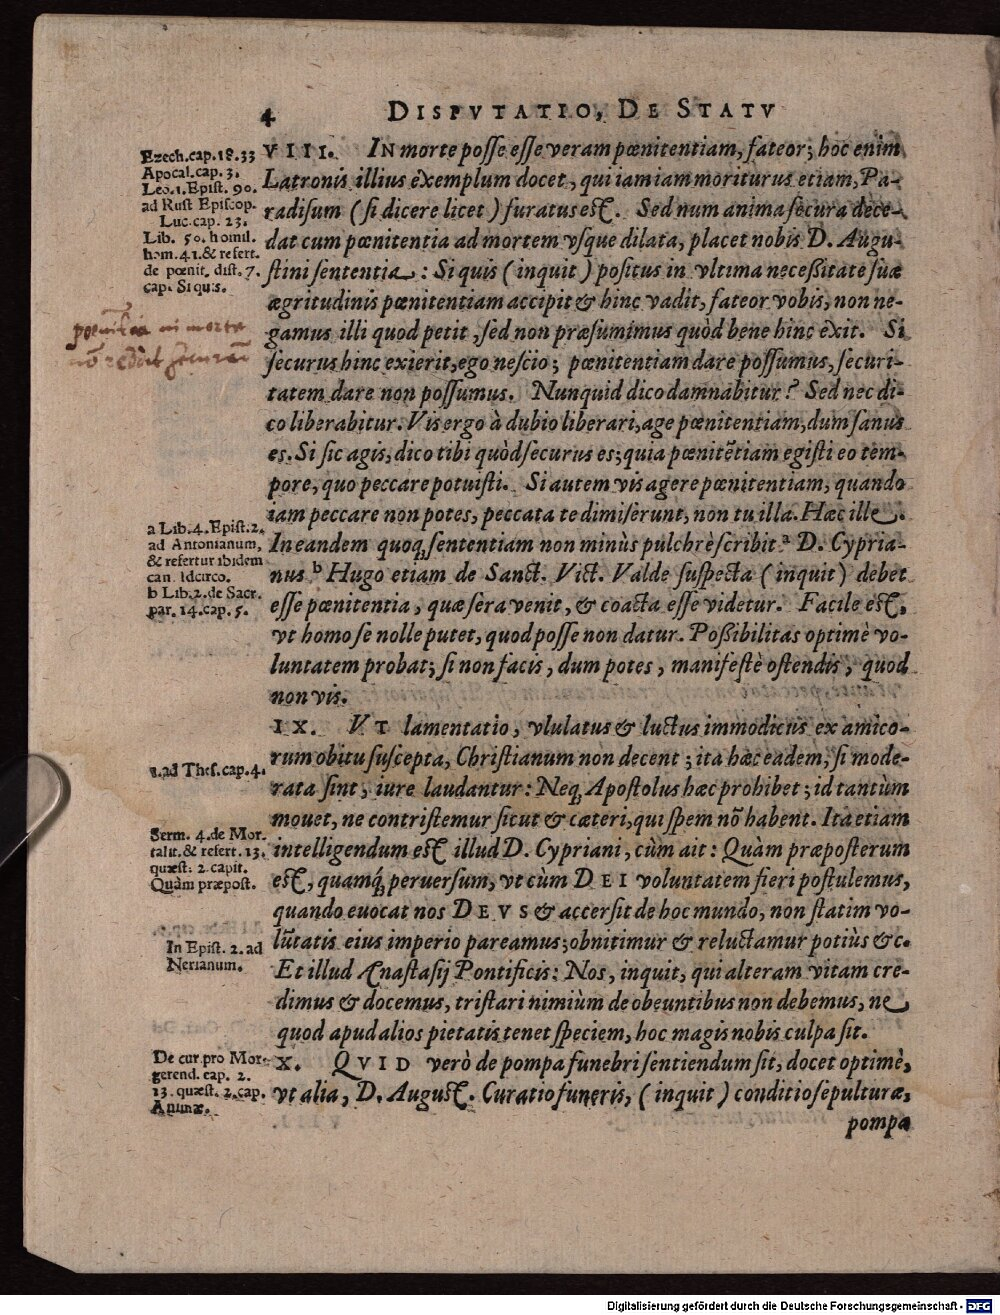 4 DISPVTATIO, DE STATV
Ezech.cap.18.33
Apocal.cap.3.
Leo.1.Epist.90.
ad Rust Episcop.
Luc.cap.23.
Lib. 50. homil.
hom.41.& refert.
de pœnit. dist.7.
cap. Si quis.
VIII. IN morte posse esse veram pœnitentiam, fateor; hoc enim
Latronis illius exemplum docet, qui iamiam moriturus etiam, Pa-
radisum (si dicere licet) furatus est. Sed num anima secura dece-
dat cum pœnitentia ad mortem vsque dilata, placet nobis D. Augu-
stini sententia: Si quis (inquit) positus in vltima necessitate suæ
ægritudinis pœnitentiam accipit & hinc vadit, fateor vobis, non ne-
gamus illi quod petit, sed non præsumimus quòd bene hinc exit. Si
securus hinc exierit, ego nescio; pœnitentiam dare possumus, securi-
tatem dare non possumus. Nunquid dico damnabitur? Sed nec di-
co liberabitur. Vis ergo à dubio liberari, age pœnitentiam, dum sanus
es. Si sic agis, dico tibi quòd securus es; quia pœnitẽtiam egisti eo tem-
pore, quo peccare potuisti. Si autem vis agere pœnitentiam, quando
iam peccare non potes, peccata te dimiserunt, non tu illa. Hæc ille.
a Lib.4.Epist.2.
ad Antonianum,
& refertur ibidem
can. Idcirco.
b Lib.2.de Sacr.
par. 14.cap. 5.
In eandem quoq; sententiam non minùs pulchrè scribit a D. Cypria-
nus b Hugo etiam de Sanct. Vict. Valde suspecta (inquit) debet
esse pœnitentia, quæ sera venit, & coacta esse videtur. Facile est,
vt homo se nolle putet, quod posse non datur. Possibilitas optimè vo-
luntatem probat; si non facis, dum potes, manifestè ostendis, quod
non vis.
IX. VT lamentatio, vlulatus & luctus immodicus ex amico-
rum obitu suscepta, Christianum non decent; ita hæc eadem, si mode-
rata sint, iure laudantur: Neq; Apostolus hæc prohibet; id tantùm
mouet, ne contristemur sicut & cæteri, qui spem nõ habent. Ita etiam
intelligendum est illud D. Cypriani, cùm ait: Quàm præposterum
est, quamq́; peruersum, vt cùm DEI voluntatem fieri postulemus,
quando euocat nos DEVS & accersit de hoc mundo, non statim vo-
lũtatis eius imperio pareamus; obnitimur & reluctamur potiùs &c.
Et illud Anastasij Pontificis: Nos, inquit, qui alteram vitam cre-
dimus & docemus, tristari nimiùm de obeuntibus non debemus, ne
quod apud alios pietatis tenet speciem, hoc magis nobis culpa sit.
1.ad Thes.cap.4.
Serm. 4.de Mor.
talit.& refert. 13.
quæst. 2 capit.
Quàm præpost.
In Epist. 2. ad
Nerianum.
X. QVID verò de pompa funebri sentiendum sit, docet optimè,
vt alia, D. August. Curatio funeris, (inquit) conditio sepulturæ,
De cur.pro Mor-
gerend. cap. 2.
13. quæst. 2. cap.
Animæ.
pompa
Digitalisierung gefördert durch die Deutsche Forschungsgemeinschaft - DFG